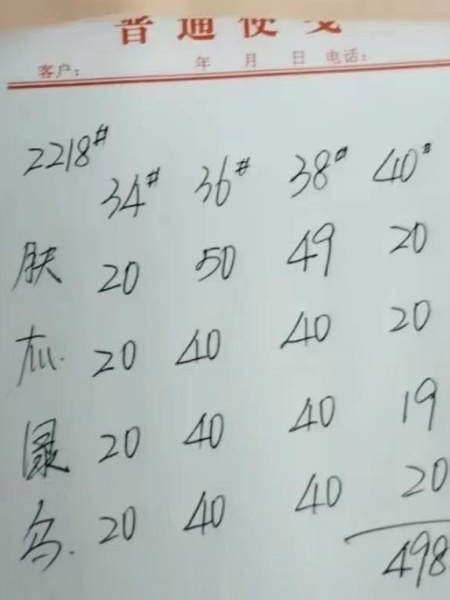 普通便笺
客户: 年 月 日 电话:
2218#
34# 36# 38# 40#
肤 20 50 49 20
20 40 40 20
绿 20 40 40 19
20 40 40 20
498